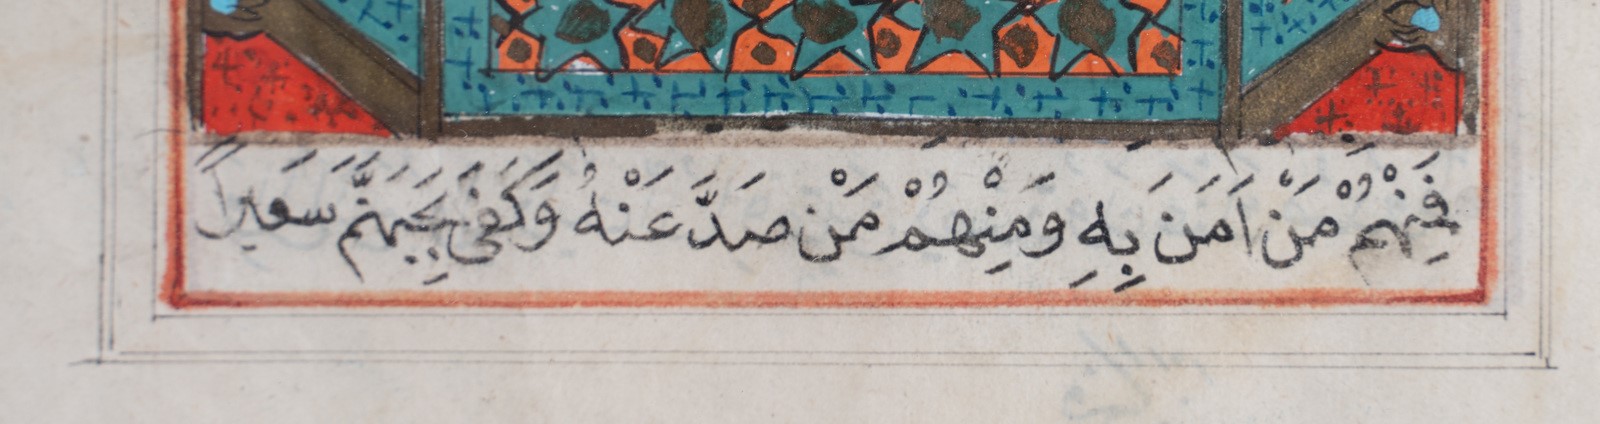 فَمِنْهُمْ مَنْ اٰمَنَ بِهِ وَمِنْهُمْ مَنْ صَدَّ عَنْهُ وَكَفَى بِجَهَنَّمَ سَعِيراً